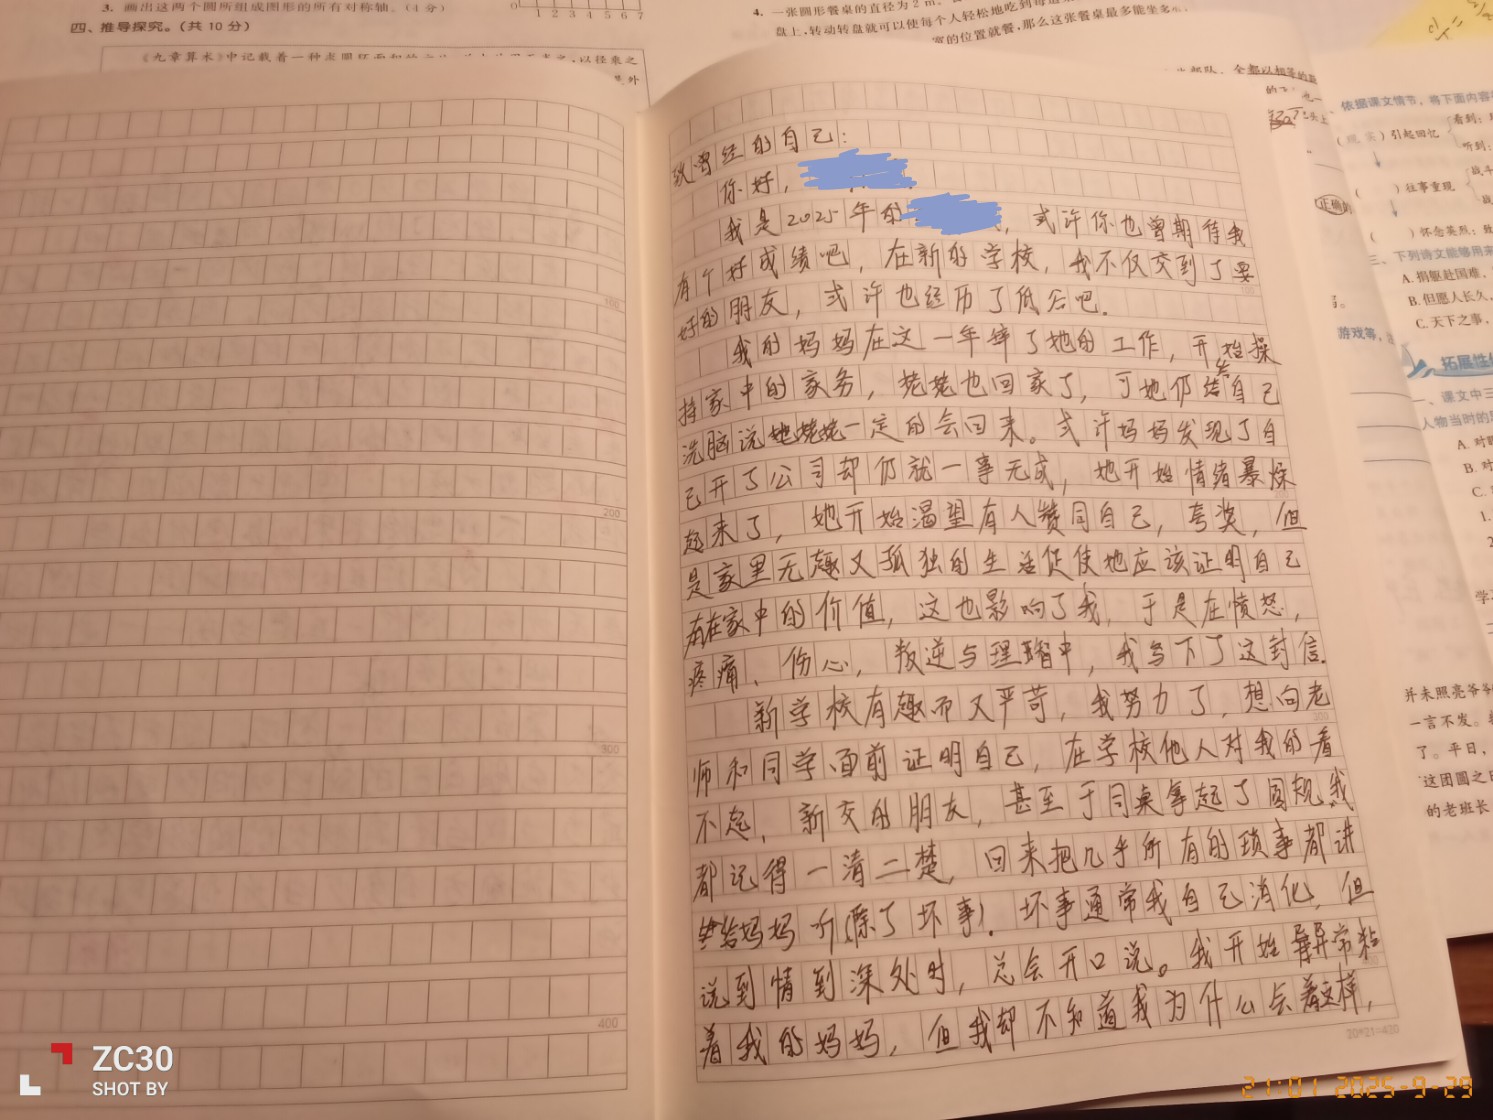 3. 画出这两个圆所组成图形的所有对称轴。(4分)
四、推导探究。(共10分)
0 1 2 3 4 5 6 7
4. 一张圆形餐桌的直径为2m,
盘上,转动转盘就可以使每个人轻松地吃到每道
宽的位置就餐,那么这张餐桌最多能坐多
致曾经的自己:
你好,
我是2025年的 ,或许你也曾期待我
有个好成绩吧,在新的学校,我不仅交到了要
好的朋友,或许也经历了低谷吧.
我的妈妈在这一年辞了她的工作,开始操
持家中的家务,姥姥也回家了,可她仍给自己
洗脑说姥姥一定的会回来。或许妈妈发现了自
己开了公司却仍就一事无成,她开始情绪暴燥
起来了,她开始渴望有人赞同自己,夸奖,但
是家里无趣又孤独的生活促使她应该证明自己
在家中的价值,这也影响了我,于是在愤怒,
疼痛、伤心,叛逆与理智中,我写下了这封信.
新学校有趣而又严苛,我努力了,想向老
师和同学面前证明自己,在学校他人对我的看
不惯,新交的朋友,甚至于同桌拿起了圆规,我
都记得一清二楚,回来把几乎所有的琐事都讲
给妈妈听(除了坏事).坏事通常我自己消化,但
说到情到深处时,总会开口说。我开始异常粘
着我的妈妈,但我却不知道我为什么会这样,
100
200
300
400
20*21=420
依据课文情节,将下面内容
引起回忆
看到:
听到:
往事重现
战斗
怀念英烈:
正确的
三、下列诗文能够用来
A. 捐躯赴国难,
B. 但愿人长久,
C. 天下之事,
游戏等,
拓展性
一、课文中三
人物当时的
A. 对
B. 对
C.
1.
并未照亮爷爷
一言不发。
了。平日,
这团圆之
的老班长
ZC30
SHOT BY
21:01 2025-9-29